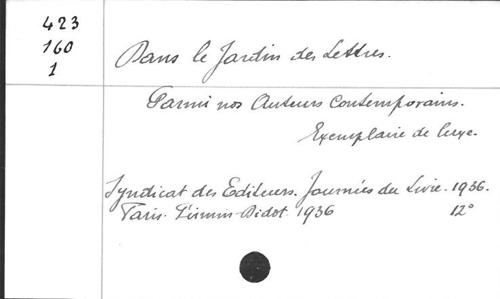 423
160
1
Dans le Jardin des Lettres.
Parmi nos Auteurs Contemporains.
Exemplaire de luxe.
Syndicat des Editeurs. Journées du Livre. 1936.
Paris. Firmin-Didot 1936 12°